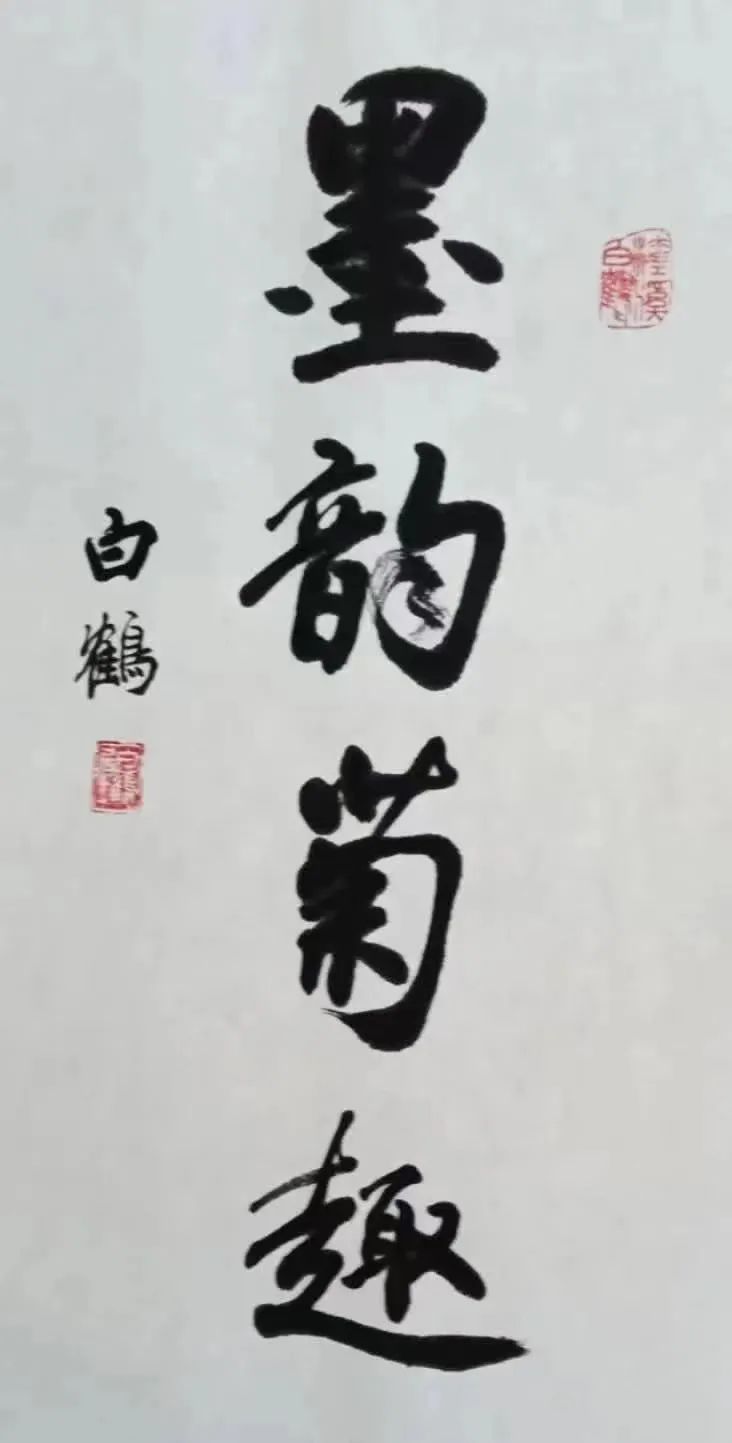 墨韵菊趣
白鶴